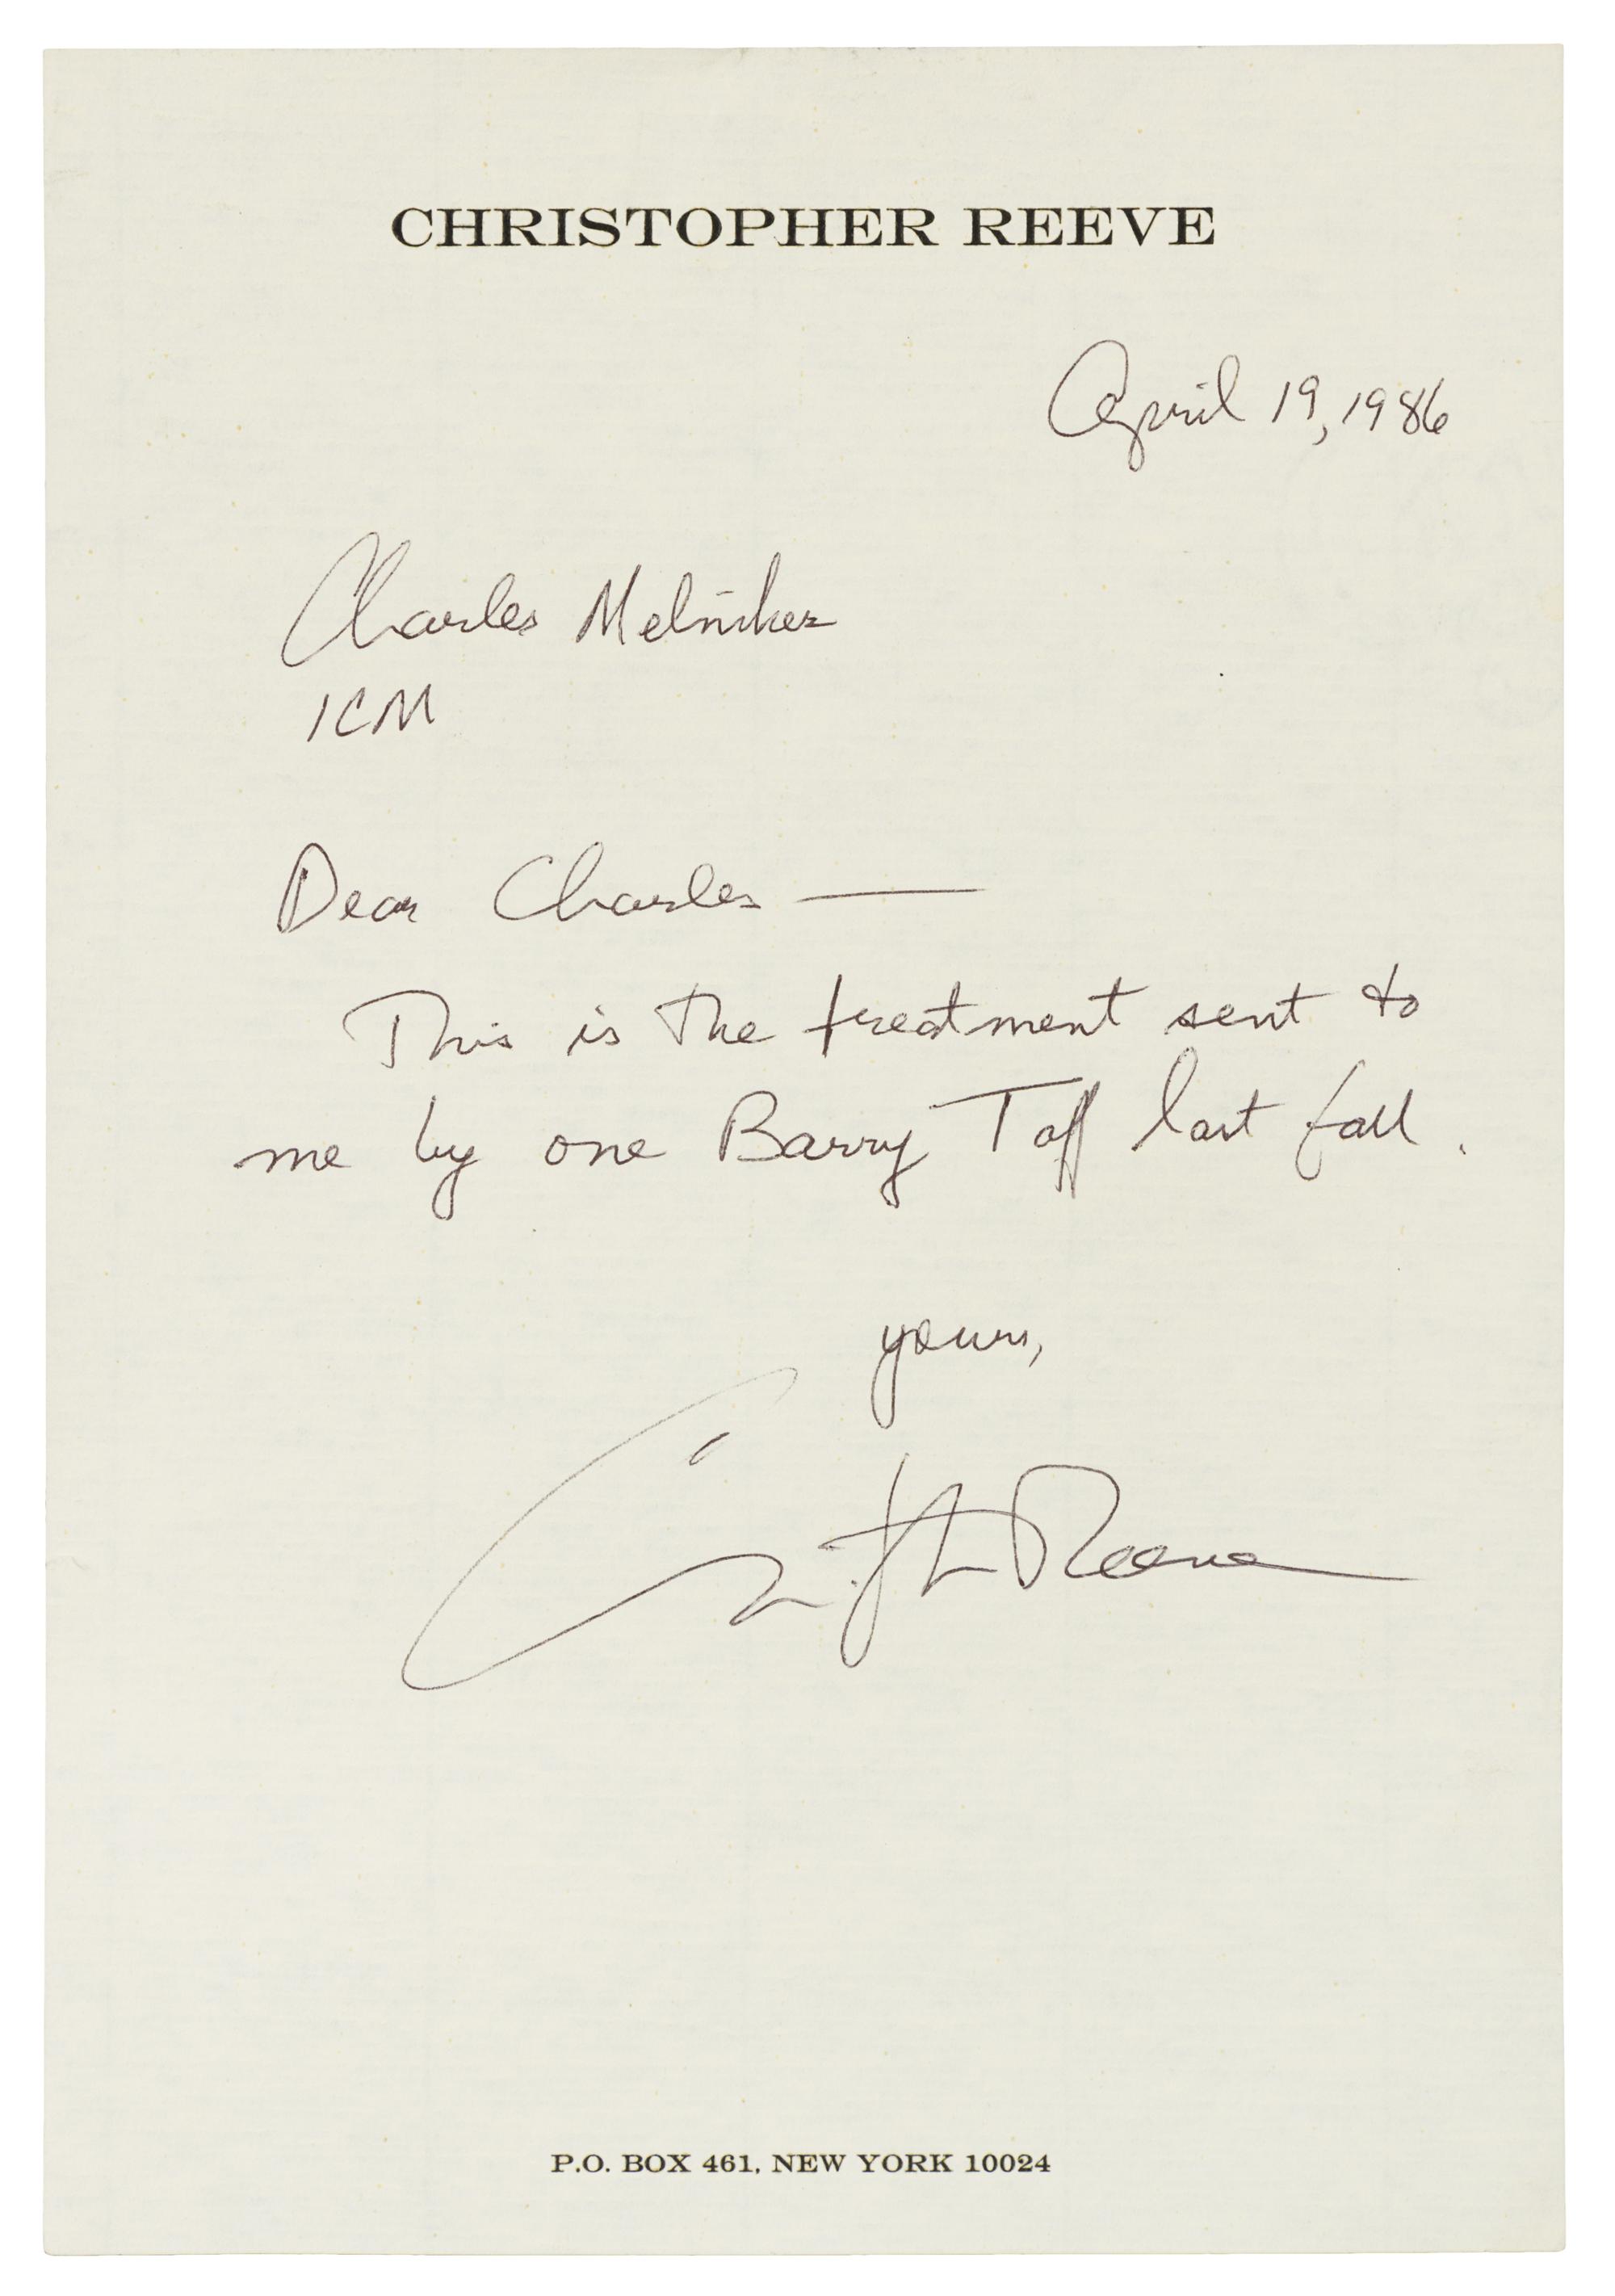 CHRISTOPHER REEVE
April 19, 1986
Charles Melniker
ICM
Dear Charles —
This is the treatment sent to
me by one Barry Taff last fall.
yours,
Christopher Reeve
P.O. BOX 461, NEW YORK 10024